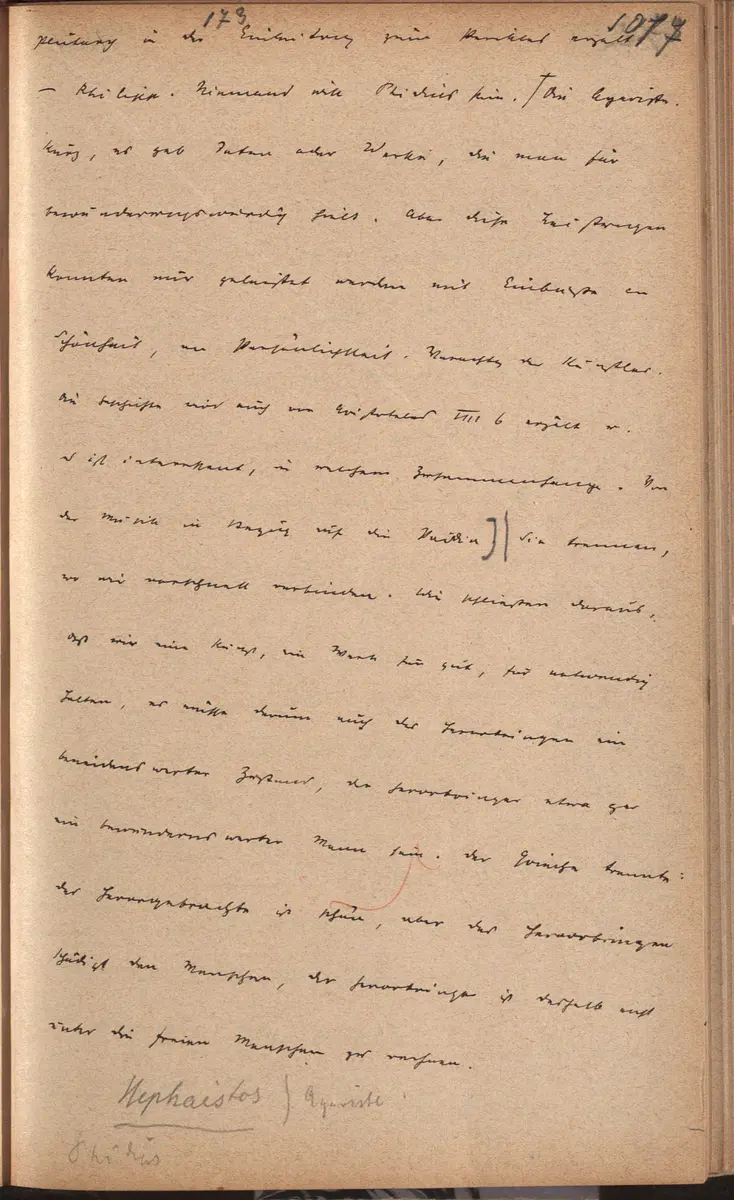 173
1077
Plutarch in der Einleitung zum Perikles erzält
– Philipp. Niemand will Phidias sein. / Die Agariste.
Kurz, es gab Taten oder Werke, die man für
bewunderungswürdig hielt. Aber diese Leistungen
konnten nur geleistet werden mit Einbusse an
Schönheit, an Persönlichkeit. Verachtg der Künstler.
Die Geschichte wird auch von Aristoteles VIII 6 erzält u.
es ist interessant, in welchem Zusammenhange. Von
der Musik in Bezug auf die Paidia )| Sie trennen,
wo wir vorschnell verbinden. Wir schliessen daraus,
dass wir eine Kunst, ein Werk für gut, für notwendig
halten, es müsse darum auch das Hervorbringen ein
beneidenswerter Zustand, der Hervorbringer etwa gar
ein bewundernswerter Mann sein. Der Grieche trennte:
das Hervorgebrachte ist schön, aber das Hervorbringen
schädigt den Menschen, der Hervorbringer ist deshalb nicht
unter die freien Menschen zu rechnen.
Hephaistos ) Agariste
Phidias